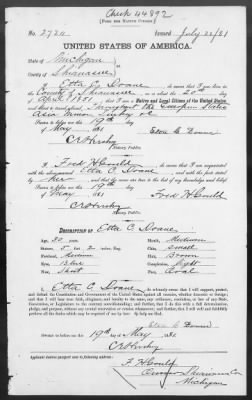 Check 44892
[FORM FOR NATIVE CITIZEN.]
No. 2724 Issued July 22/81
UNITED STATES OF AMERICA.
STATE OF Michigan
COUNTY OF Shiawassee
I, Etta C. Doane, do swear that I was born in
County of Shiawassee on or about the 20th day
of April 1851; that I am a Native and Loyal Citizen of the United States,
and about to travel
Asia Minor Turkey &c
Sworn to before me this 19th day
of May 1881
Etta C Doane
C R Hersey
Notary Public.
I, Fred H Gould, do swear that I am acquainted with the
above-named Etta C. Doane, and with the facts stated
by her and that the same are true to the best of my knowledge and belief.
Sworn to before me this 19th day
of May 1881
Fred H Gould
C R Hersey
Notary Public.
DESCRIPTION OF Etta C Doane
Age, 30 years. Mouth, Medium
Stature, 5 feet, 2 inches, Eng. Chin, small
Forehead, Medium Hair, Brown
Eyes, Blue Complexion, Light
Nose, Short Face, Oval
I, Etta C. Doane, do solemnly swear that I will support, protect,
and defend the Constitution and Government of the United States against all enemies, whether domestic or foreign; and
that I will bear true faith, allegiance, and loyalty to the same, any ordinance, resolution, or law of any State,
Convention, or Legislature to the contrary notwithstanding; and further, that I do this with a full determination,
pledge, and purpose, without any mental reservation or evasion whatsoever; and further, that I will well and faithfully
perform all the duties which may be required of me by law: So help me God.
Etta C Doane
Sworn to before me this 19th day of May 1881
C R Hersey
Notary Public.
Applicant desires passport to be sent to following address:
F. H. Gould
Owosso Shiawassee Co
Michigan